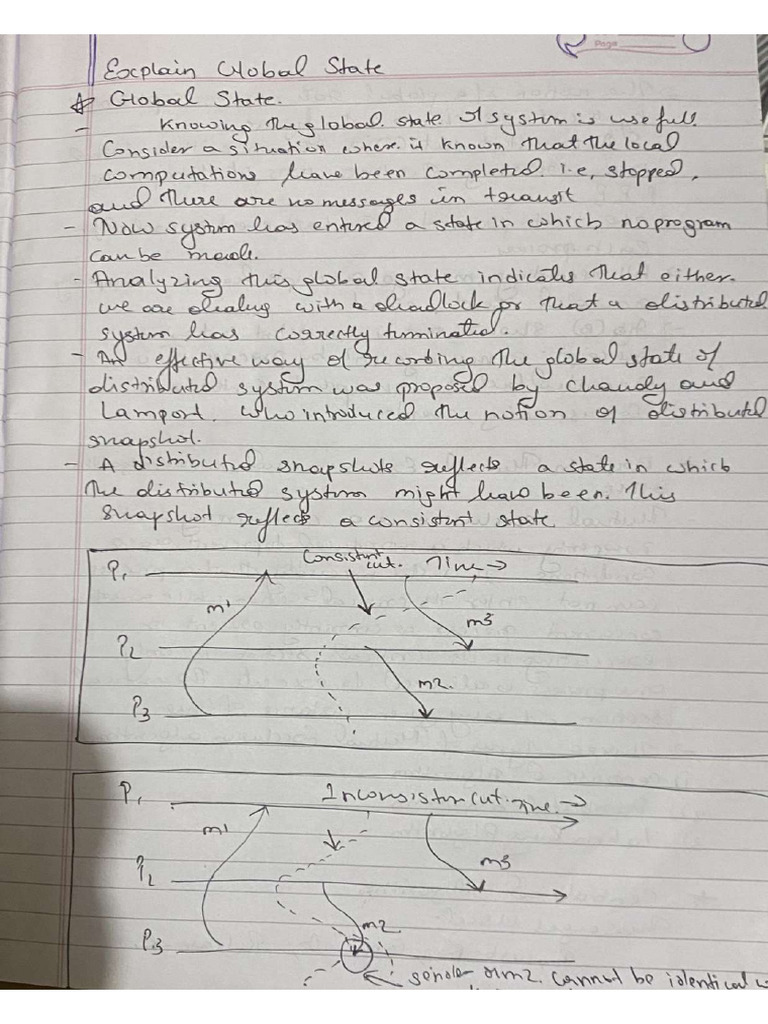 Page
Explain Global State
Global State.
- Knowing the global state of system is usefull.
Consider a situation where is known that the local
computations have been completed. i.e, stopped,
and there are no messages in transit
- Now system has entered a state in which no program
can be made.
- Analyzing this global state indicates that either.
we are dealing with a deadlock or that a distributed
system has correctly terminated.
- An effective way of recording the global state of
distributed system was proposed by Chandy and
Lamport. who introduced the notion of distributed
snapshot.
- A distributed snapshots reflects a state in which
the distributed system might have been. This
snapshot reflects a consistent state
P1 Consistent cut. Time →
m1
m3
P2
m2.
P3
P1 Inconsistent cut. Time →
m1
m3
P2
m2
P3
← sender m2. cannot be identical